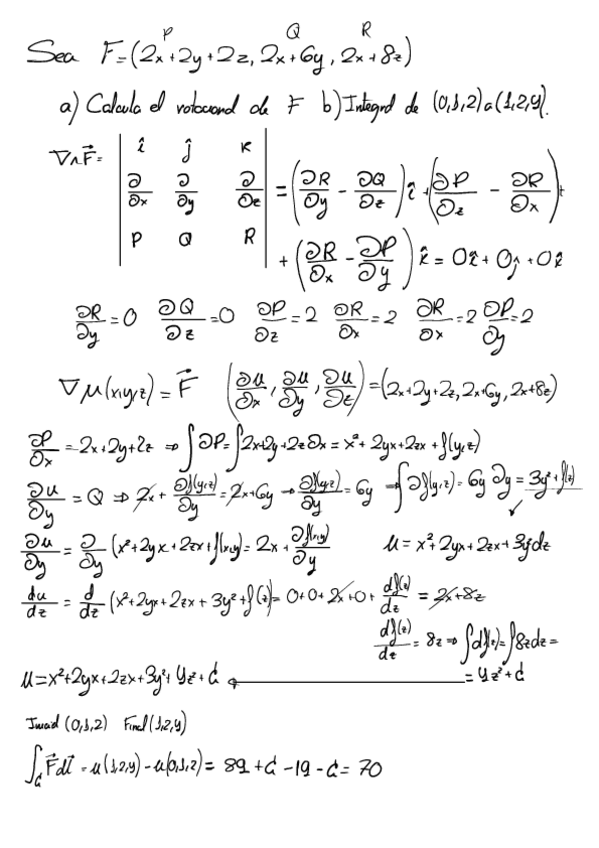 P Q R
Sea F=(2x+2y+2z, 2x+6y, 2x+8z)
a) Calcula el rotacional de F b) Integral de (0,1,2) a (1,2,4).
∇∧F⃗= | î ĵ k ; ∂/∂x ∂/∂y ∂/∂z ; P Q R | = (∂R/∂y - ∂Q/∂z) î + (∂P/∂z - ∂R/∂x) +
+ (∂R/∂x - ∂P/∂y) k̂ = 0î + 0ĵ + 0k̂
∂R/∂y = 0 ∂Q/∂z = 0 ∂P/∂z = 2 ∂R/∂x = 2 ∂R/∂x = 2 ∂P/∂y = 2
∇μ(x,y,z) = F⃗ (∂u/∂x, ∂u/∂y, ∂u/∂z) = (2x+2y+2z, 2x+6y, 2x+8z)
∂P/∂x = 2x+2y+2z ⇒ ∫∂P = ∫2x+2y+2z ∂x = x²+2yx+2zx+f(y,z)
∂u/∂y = Q ⇒ 2x + ∂f(y,z)/∂y = 2x+6y → ∂f(y,z)/∂y = 6y → ∫∂f(y,z) = 6y ∂y = 3y²+f(z)
∂u/∂y = ∂/∂y (x²+2yx+2zx+f(x,y)) = 2x + ∂f(x,y)/∂y u = x²+2yx+2zx+3y²dz
du/dz = d/dz (x²+2yx+2zx+3y²+f(z)) = 0+0+2x+0+ df(z)/dz = 2x+8z
df(z)/dz = 8z ⇒ ∫df(z) = ∫8zdz =
u = x²+2yx+2zx+3y²+4z²+C ← = 4z²+C
Inicial (0,1,2) Final (1,2,4)
∫c F⃗dl⃗ = u(1,2,4) - u(0,1,2) = 89 + C - 19 - C = 70